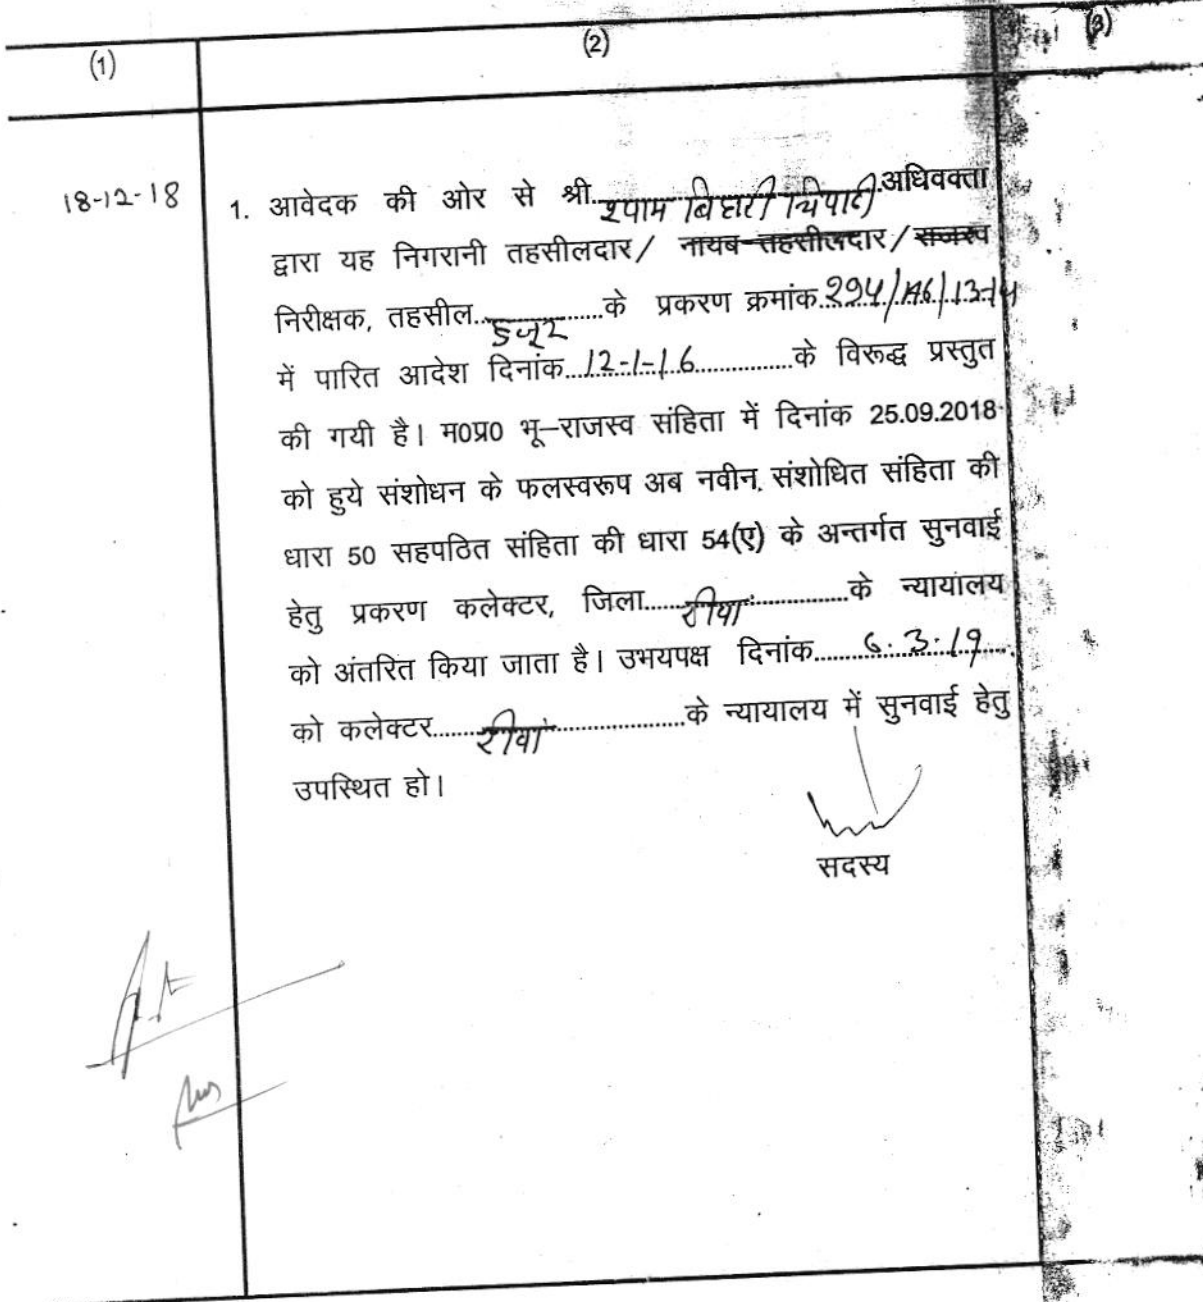 (1) (2) (3)
18-12-18
1. आवेदक की ओर से श्री श्याम बिहारी त्रिपाठी अधिवक्ता
द्वारा यह निगरानी तहसीलदार/ नायब तहसीलदार/राजस्व
निरीक्षक, तहसील..हुजूर..के प्रकरण क्रमांक.294/A6/13-14
में पारित आदेश दिनांक...12-1-16...के विरूद्ध प्रस्तुत
की गयी है। म0प्र0 भू–राजस्व संहिता में दिनांक 25.09.2018
को हुये संशोधन के फलस्वरूप अब नवीन संशोधित संहिता की
धारा 50 सहपठित संहिता की धारा 54(ए) के अन्तर्गत सुनवाई
हेतु प्रकरण कलेक्टर, जिला...रीवा...के न्यायालय
को अंतरित किया जाता है। उभयपक्ष दिनांक...6.3.19...
को कलेक्टर...रीवा...के न्यायालय में सुनवाई हेतु
उपस्थित हो।
सदस्य